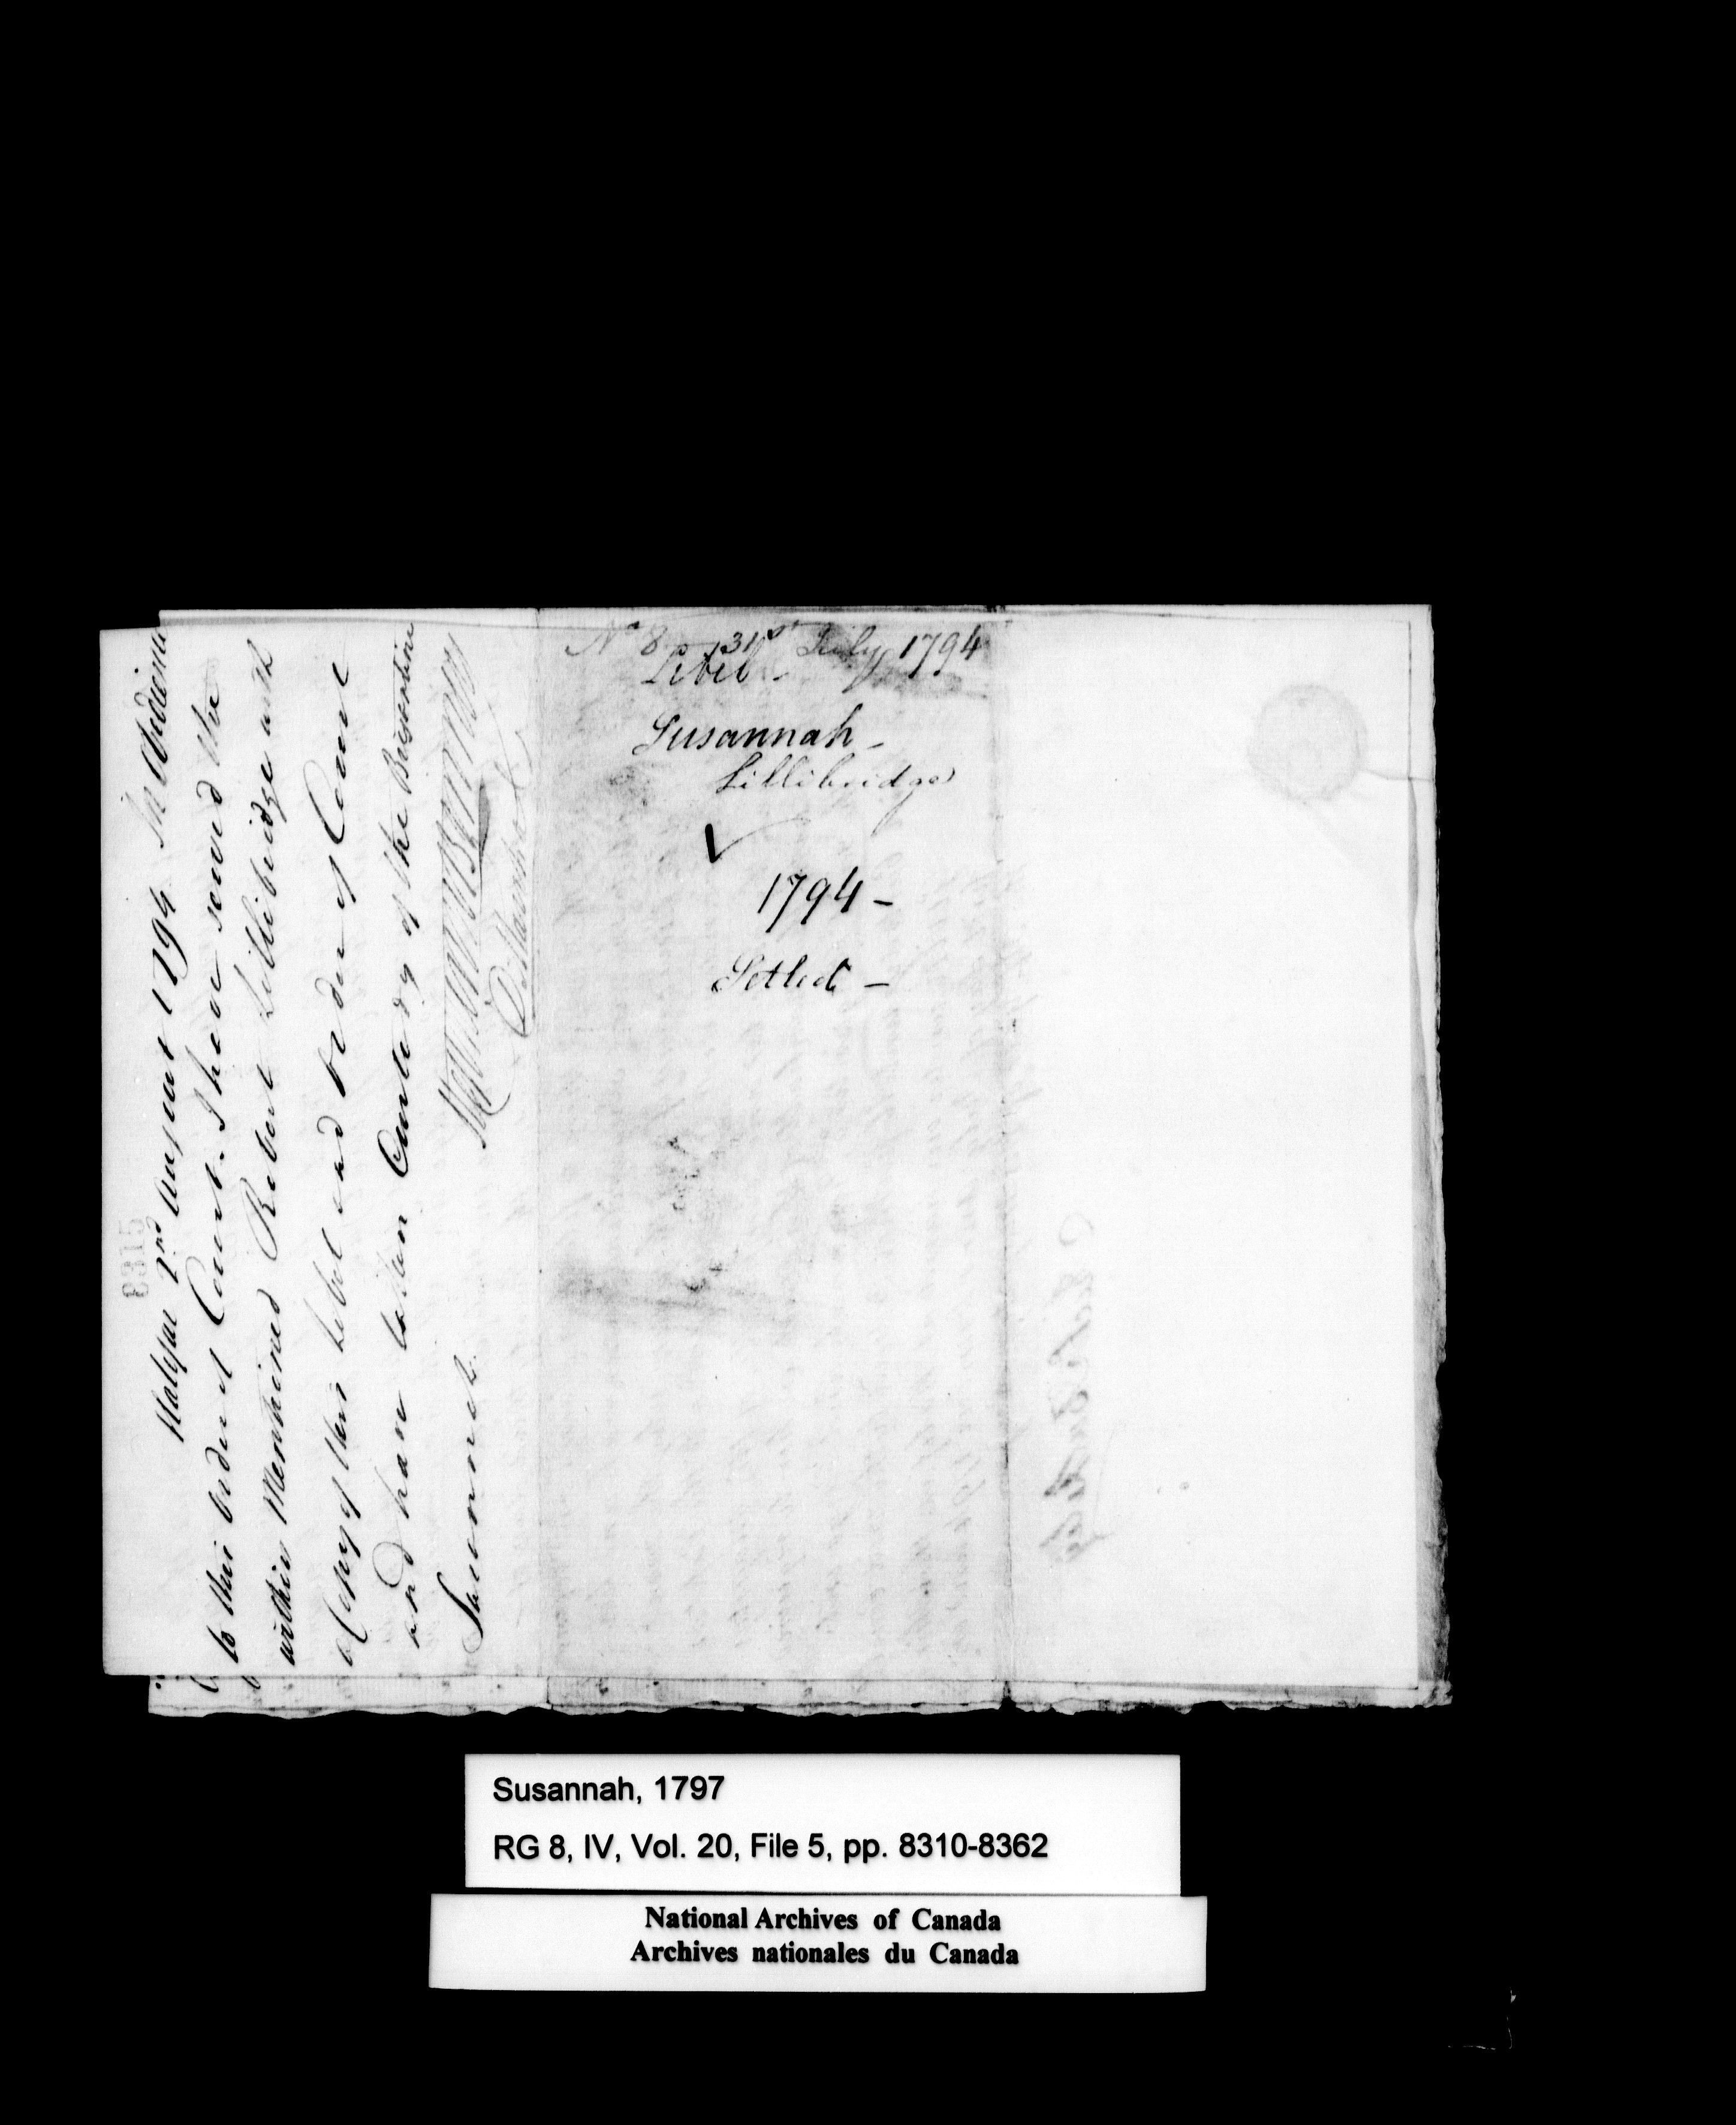 8315
Halifax 2nd August 1794 In Obedience
to this order of Court. I have served the
within Mentioned Robert Lillibridge with
a Copy of this Libel and order of Court
and have taken Custody of the Brigantine
Susannah.
D. Marshal
No 8 31st July 1794
Libel
Susannah -
Lillibridge
1794 -
Setled -
Susannah, 1797
RG 8, IV, Vol. 20, File 5, pp. 8310-8362
National Archives of Canada
Archives nationales du Canada